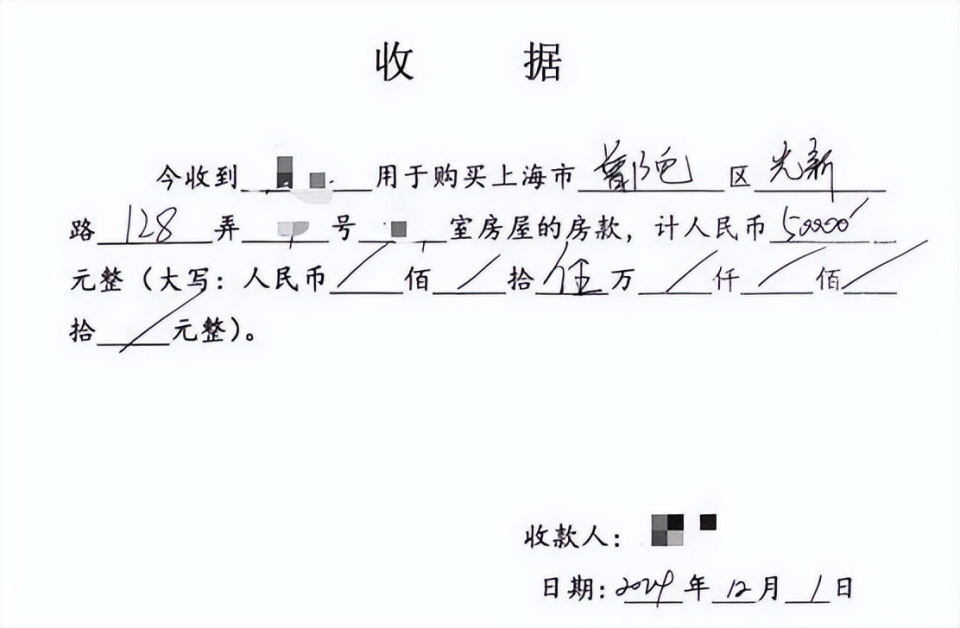 收 据
今收到 用于购买上海市普陀区光新
路128弄 号 室房屋的房款,计人民币50000
元整(大写:人民币/佰/拾伍万/仟/佰/
拾/元整)。
收款人:
日期:2024年12月1日